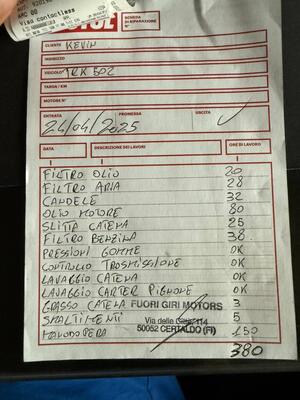 Visa contactless
SCHEDA
DI RIPARAZIONE
N°
CLIENTE KEVIN
INDIRIZZO
VEICOLO TRK 502
TARGA / KM
MOTORE N°
ENTRATA PROMESSA USCITA
24/04/2025
DATA DESCRIZIONE DEI LAVORI ORE DI LAVORO
FILTRO OLIO 20
FILTRO ARIA 28
CANDELE 32
OLIO MOTORE 80
SLITTA CATENA 25
FILTRO BENZINA 38
PRESSIONI GOMME OK
CONTROLLO TRASMISSIONE OK
LAVAGGIO CATENA OK
LAVAGGIO CARTER PIGNONE OK
GRASSO CATENA 3
FUORI GIRI MOTORS
SMALTIMENTI 5
Via delle 114
50052 CERTALDO (FI)
MANODOPERA 150
380